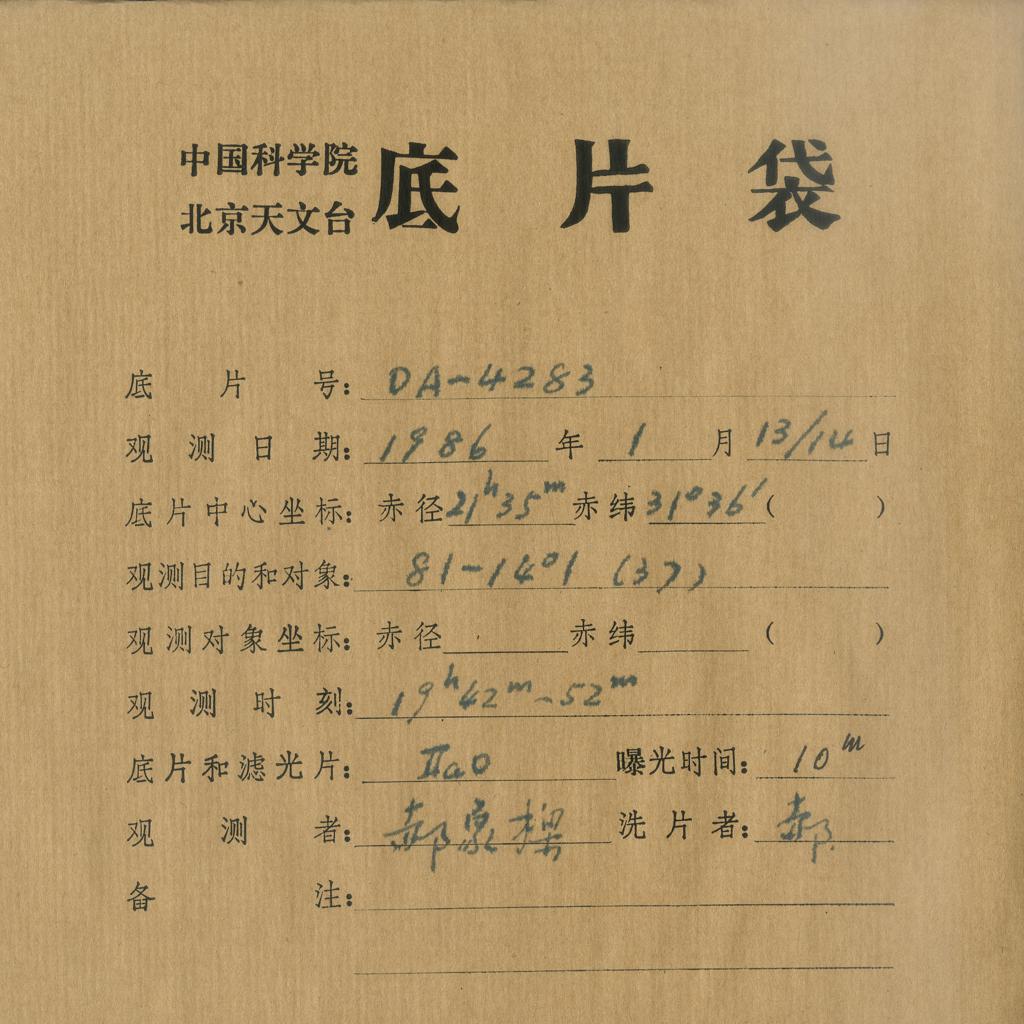 中国科学院
北京天文台 底片袋
底片号: DA-4283
观测日期: 1986 年 1 月 13/14 日
底片中心坐标: 赤径 21ʰ35ᵐ 赤纬 31°36′ ( )
观测目的和对象: 81-14°1 (37)
观测对象坐标: 赤径 赤纬 ( )
观测时刻: 19ʰ42ᵐ-52ᵐ
底片和滤光片: IIaO 曝光时间: 10ᵐ
观测者: 郝象樑 洗片者: 郝
备注: